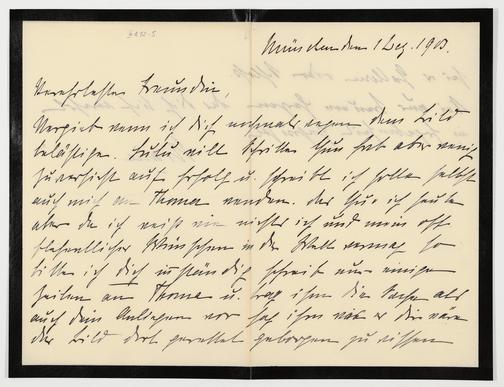 München den 1 Dez. 1903.
Verehrteste Freundin,
Vergieb wenn ich dich nochmals wegen dem Bild
belästige. Lulu will Schritte thun hat aber wenig
Zuversicht auf Erfolg u. schreibt ich solle selbst
auch mich an Thoma wenden. das thue ich heute
aber da ich weiß wie nichts ich und mein oft
Wünschen in der Welt vermag so
bitte ich dich inständig schreib nur einige
Zeilen an Thoma u. trag ihm die Sache als
auch dein Anliegen vor sag ihm wie er dir wäre
das Bild dort gerettet geborgen zu wissen